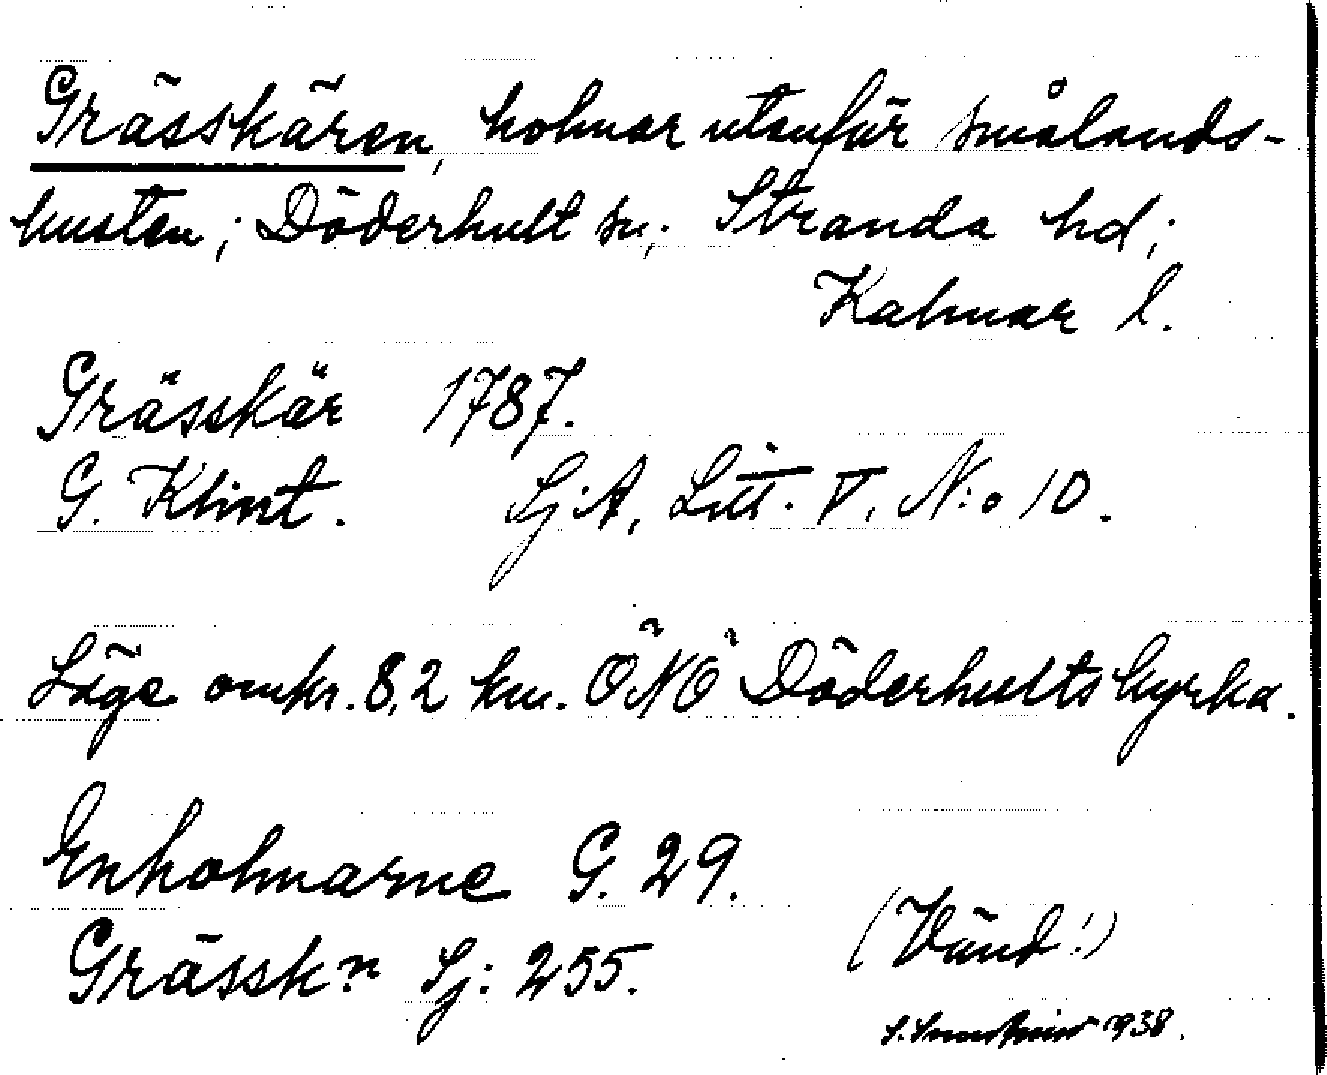 Grässkären, holmar utanför smålands-
kusten; Döderhult sn; Stranda hd;
Kalmar l.
Grässkär 1787.
G. Klint. Sj:A, Litt. V, N:o 10.
Läge omkr. 8,2 km. ÖNÖ Döderhults kyrka.
Enholmarne G. 29.
Grässk:n Sj: 255.
(Vänd!)
1938.